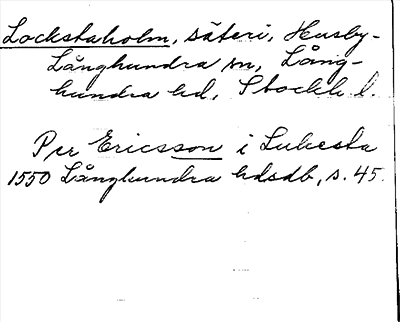 Lockstaholm, säteri, Husby-
Långhundra sn, Lång-
hundra hd, Stockh. l.
Per Ericsson i Lukesta
1550 Långhundra hdsdb, s. 45.